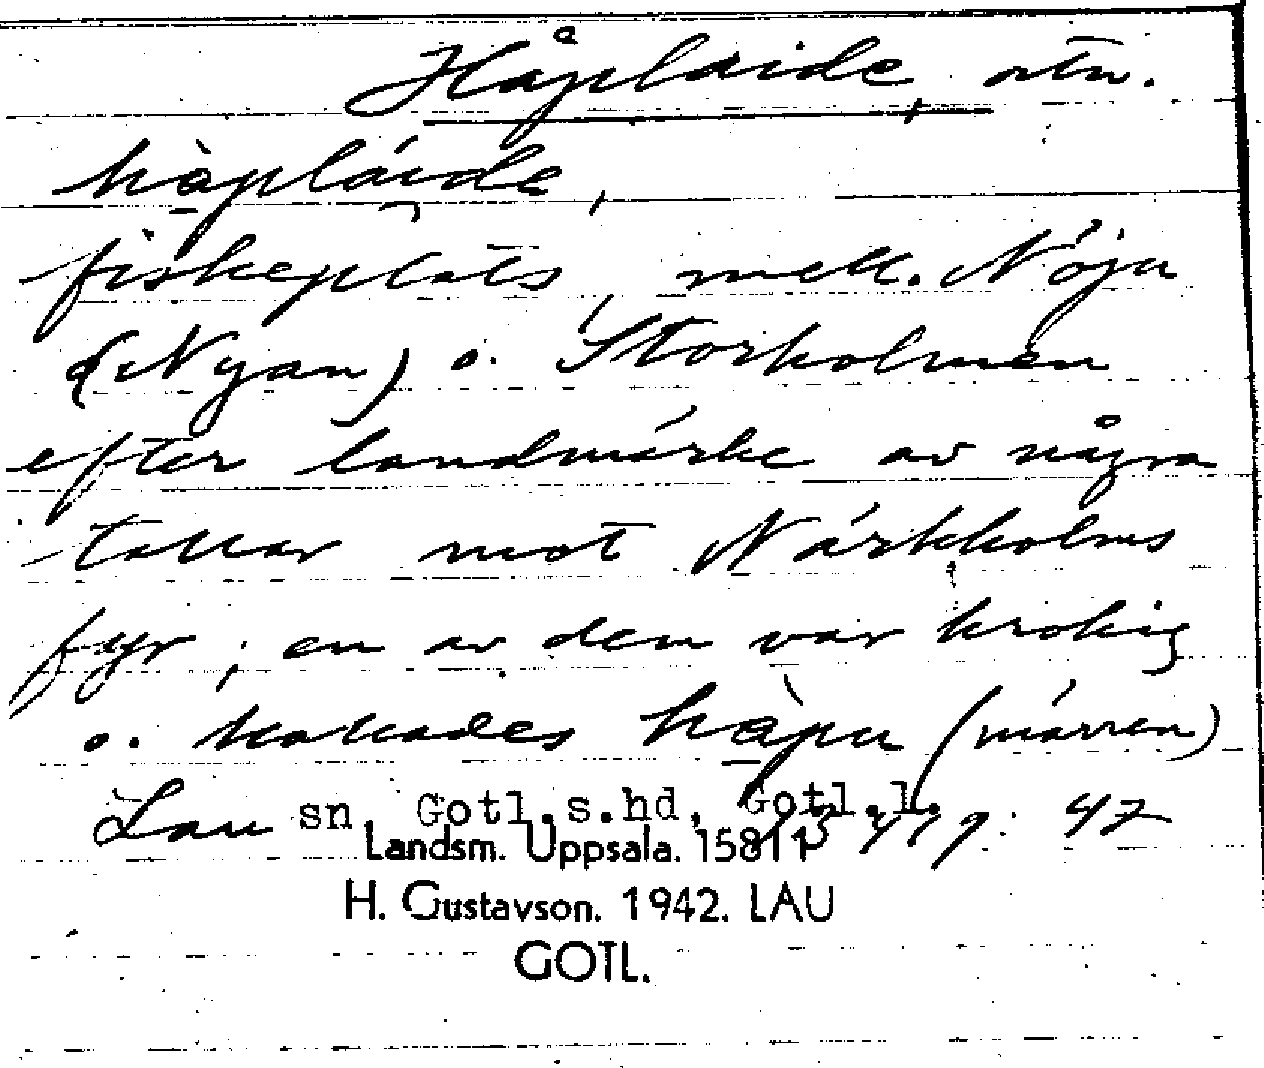 Håplaide, ortn.
hàpláide,
fiskeplats, mell. Nöju
(Nyan) o. Storholmen
efter landmärke av några
tallar mot Närkholms
fyr; en av dem var krokig
o. kallades hàpu (märren)
Lau sn, Gotl.s.hd, Gotl.l. 47
Landsm. Uppsala. 15811
H. Gustavson. 1942. LAU
GOTL.